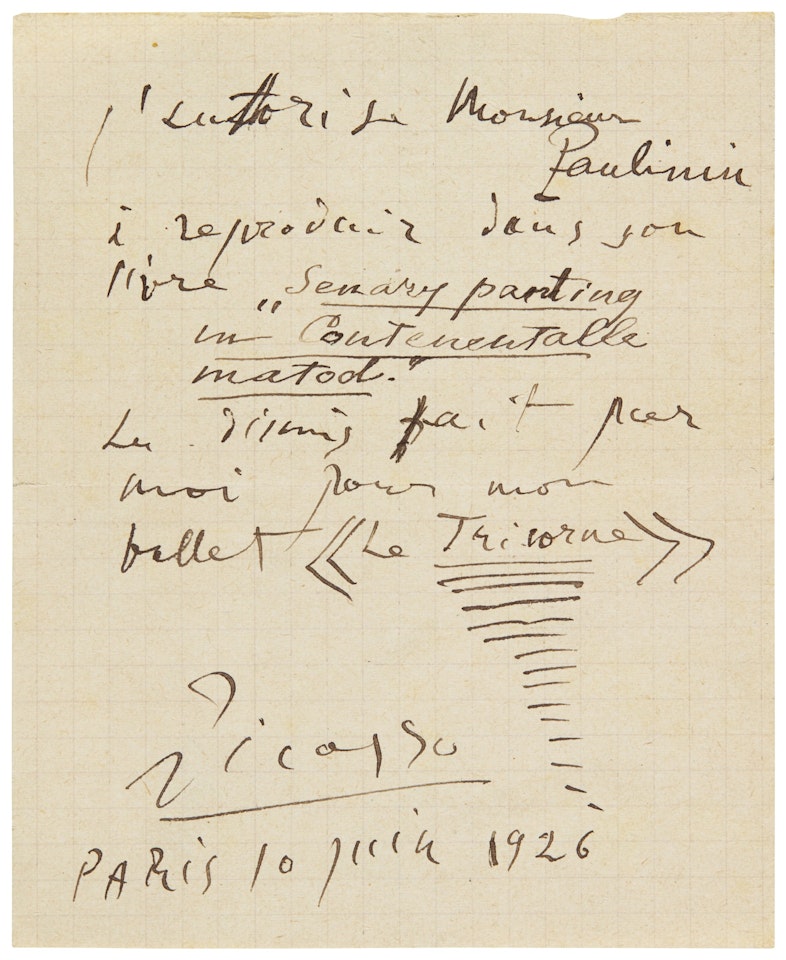 j'autorise Monsieur
Paulinin
à reproduir dans son
livre „Senary panting
in Contenentalle
matod."
le dismis fait par
moi pour mon
ballet «Le Tricorne»
Picasso
PARIS 10 juin 1926